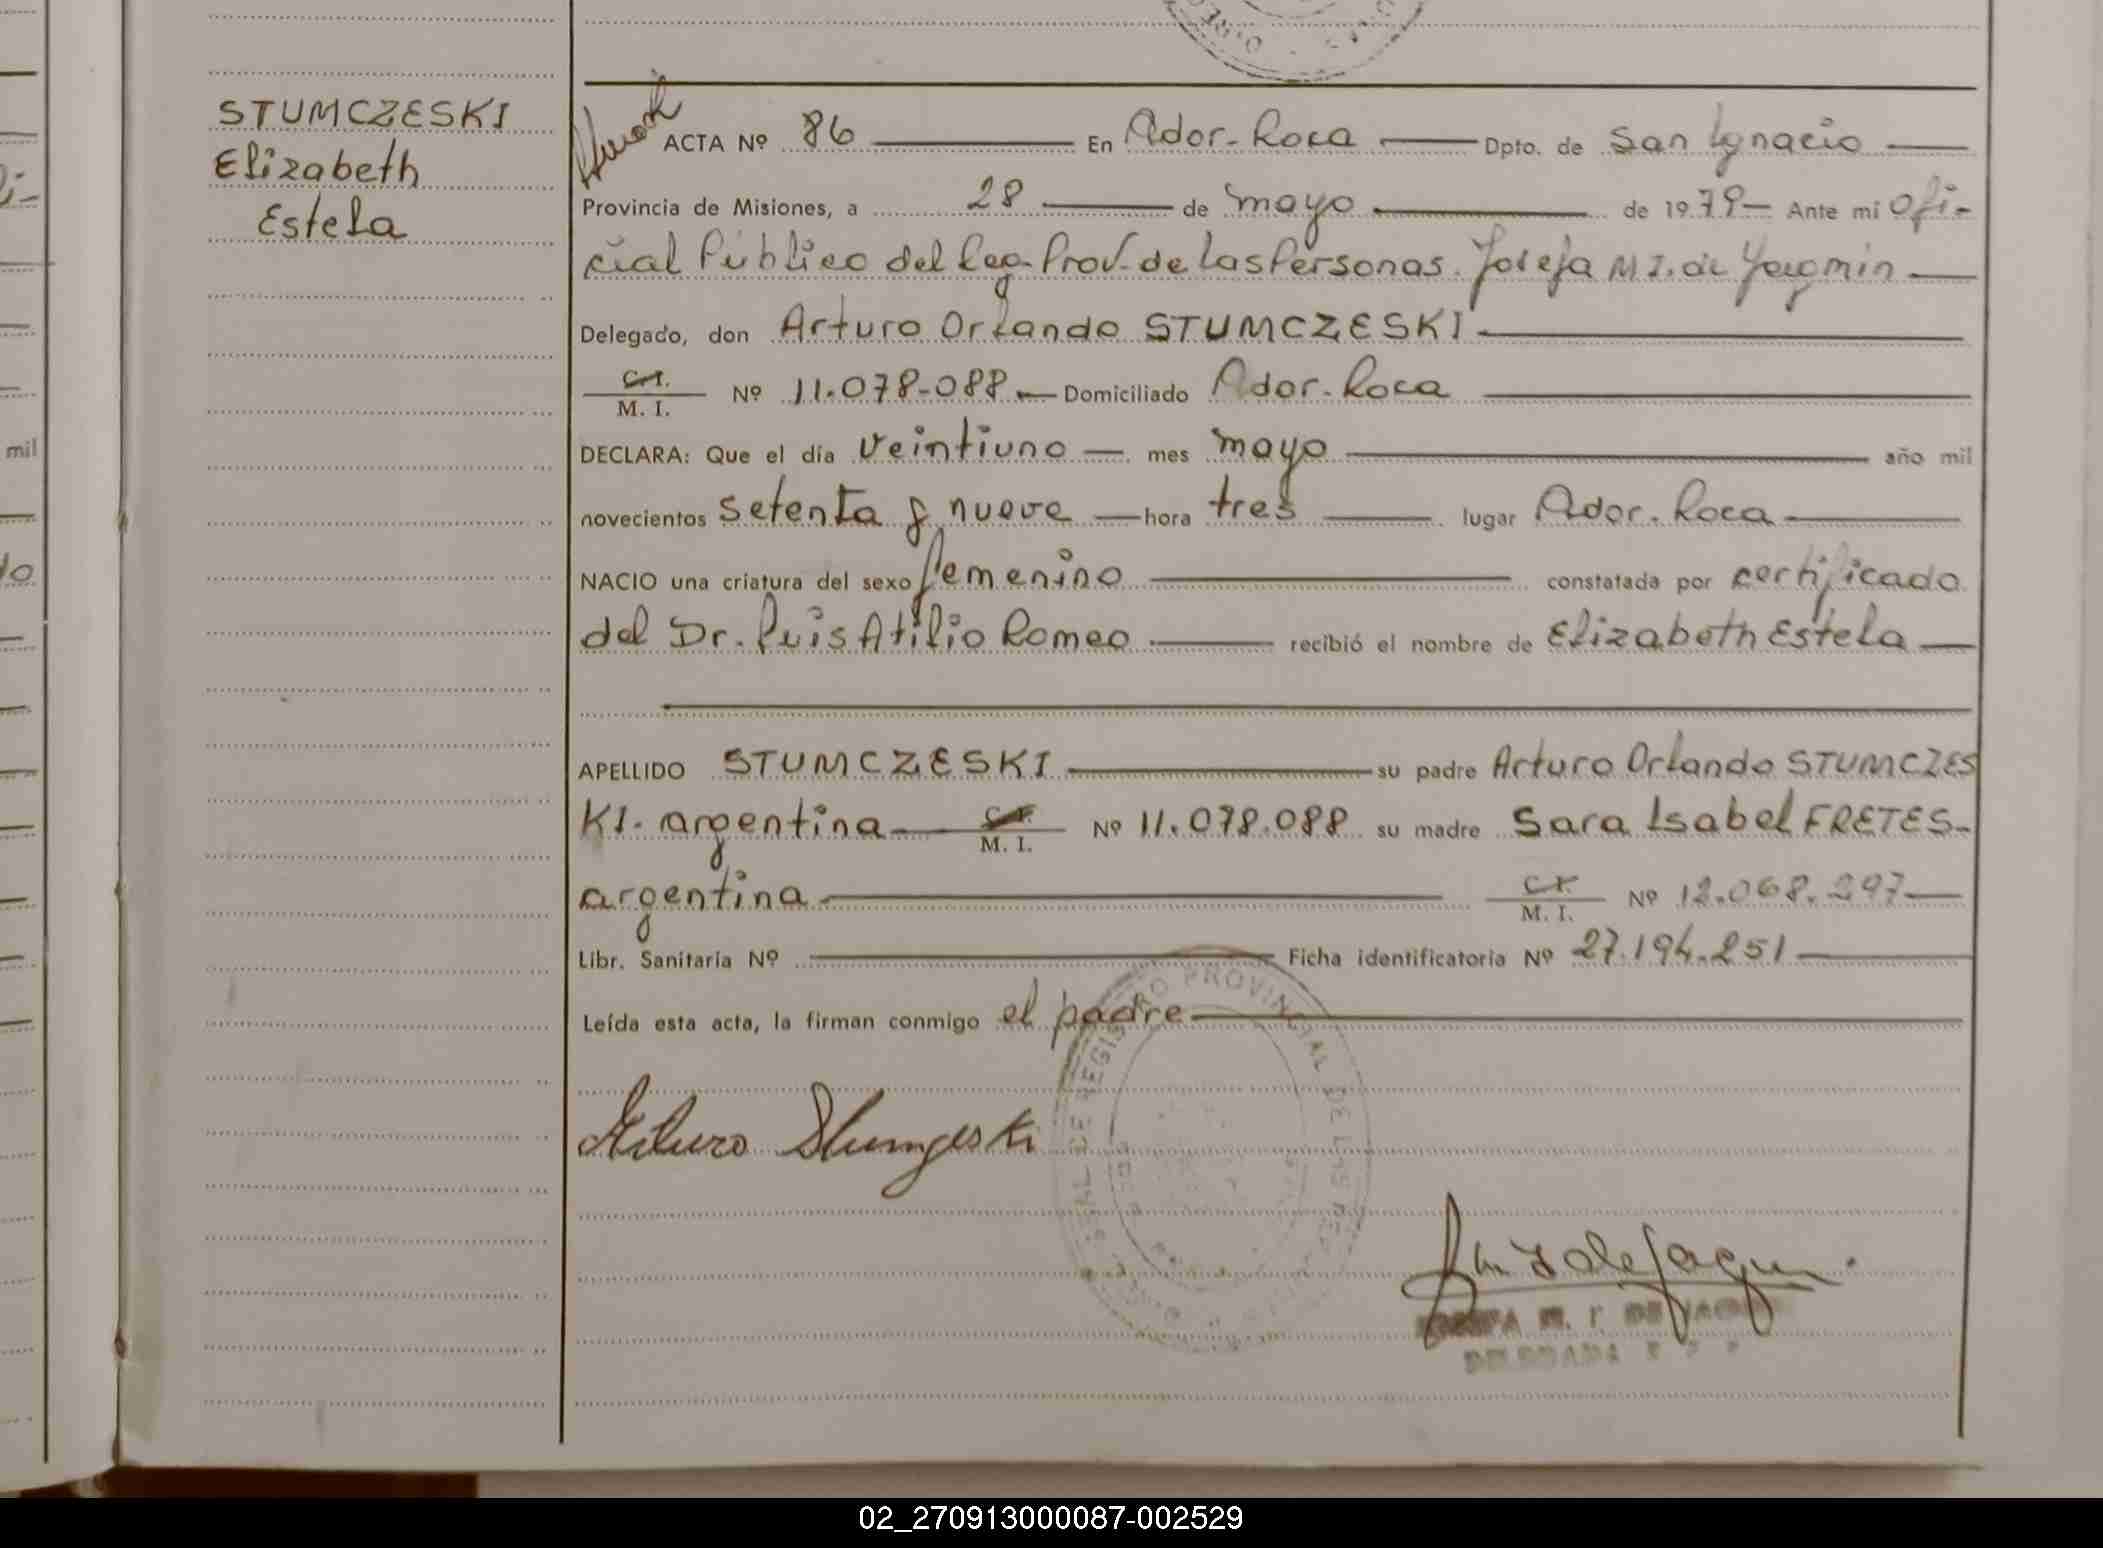 STUMCZESKI
Elizabeth
Estela
ACTA Nº 86 En Ador. Roca Dpto. de San Ignacio
Provincia de Misiones, a 28 de mayo de 1979 Ante mi ofi-
cial Público del Reg. Prov. de las Personas. Josefa M I. de
Delegado, don Arturo Orlando STUMCZESKI
C.I.
M. I. Nº 11.078.088 Domiciliado Ador. Roca
DECLARA: Que el día veintiuno mes mayo año mil
novecientos setenta y nueve hora tres lugar Ador. Roca
NACIO una criatura del sexo femenino constatada por certificado
del Dr. Luis Atilio Romeo recibió el nombre de Elizabeth Estela
APELLIDO STUMCZESKI su padre Arturo Orlando STUMCZES
KI. argentina C.I. M. I. Nº 11.078.088 su madre Sara Isabel FRETES-
argentina C.I. M. I. Nº 12.068.297
Libr. Sanitaria Nº Ficha identificatoria Nº 27.194.251
Leída esta acta, la firman conmigo el padre
REGISTRO PROVINCIAL DE LAS
Arturo Stumczeski
mil
02_270913000087-002529